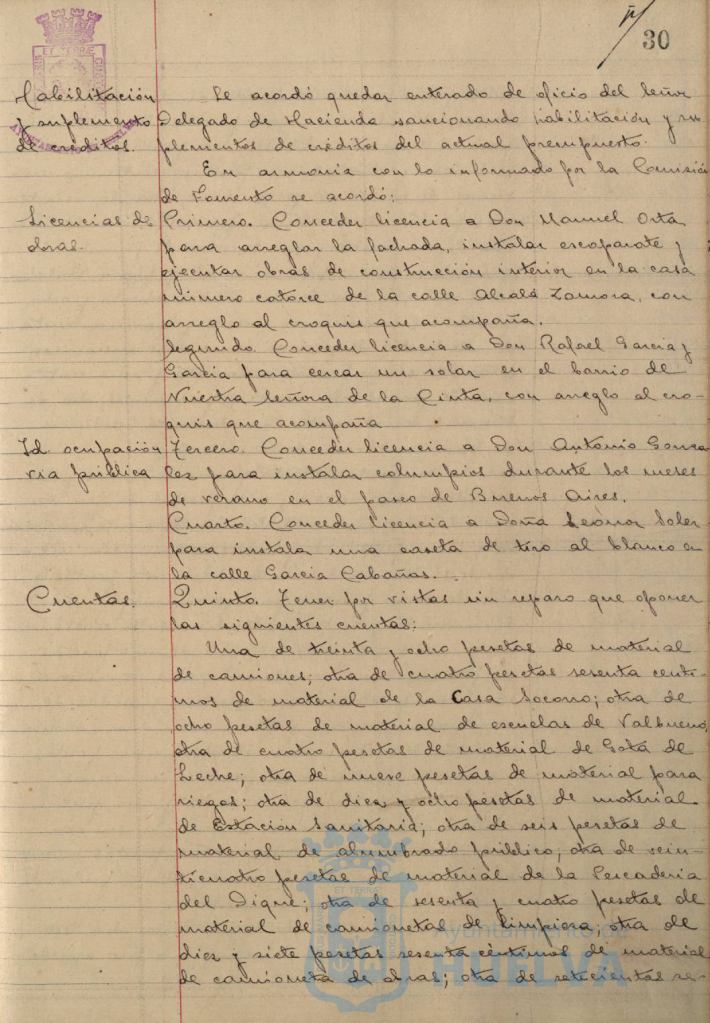 30
Habilitación
y suplemento
de créditos.
Se acordó quedar enterado de oficio del Señor
Delegado de Hacienda sancionando habilitación y su
plementos de créditos del actual presupuesto.
En armonia con lo informado por la Comisión
de Fomento se acordó:
Licencias de
obras.
Primero. Conceder licencia a Don Manuel Orta
para arreglar la fachada, instalar escaparate y
ejecutar obras de construcción interior en la casa
número catorce de la calle Alcalá Zamora, con
arreglo al croquis que acompaña.
Segundo. Conceder licencia a Don Rafael Garcia y
Garcia para cercar un solar en el barrio de
Nuestra Señora de la Cinta, con arreglo al cro-
quis que acompaña
Id. ocupación
via pública
Tercero. Conceder licencia a Don Antonio Gonza
lez para instalar columpios durante los meses
de verano en el paseo de Buenos Aires.
Cuarto. Conceder licencia a Doña Leonor Soler
para instala una caseta de tiro al blanco en
la calle Garcia Cabañas.
Cuentas.
Quinto. Tener por vistas sin reparo que oponer
las siguientes cuentas:
Una de treinta y ocho pesetas de material
de camiones; otra de cuatro pesetas sesenta centi-
mos de material de la Casa Socorro; otra de
ocho pesetas de material de escuelas de Valbueno,
otra de cuatro pesetas de material de Gota de
Leche; otra de nueve pesetas de material para
riegos; otra de diez y ocho pesetas de material
de Estación Sanitaria; otra de seis pesetas de
material de alumbrado público; otra de vein-
ticuatro pesetas de material de la Pescaderia
del Dique; otra de sesenta y cuatro pesetas de
material de camionetas de limpieza; otra de
diez y siete pesetas sesenta céntimos de material
de camioneta de obras; otra de setecientas se-
ET TERRÆ
Ayuntamiento de
HUELVA